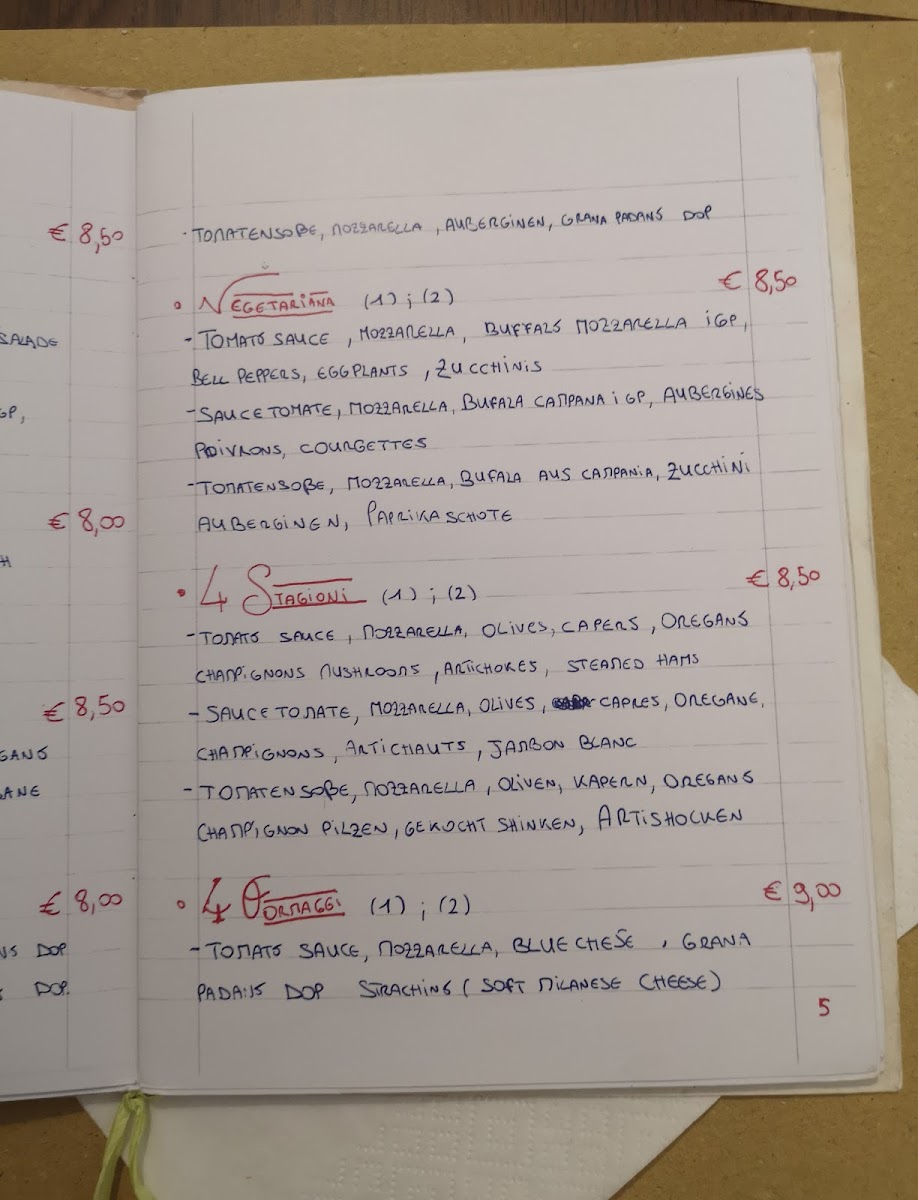 € 8,50
SALADE
GP,
€ 8,00
H
€ 8,50
GANO
ANE
€ 8,00
DOP
DOP.
- TOMATENSOßE, MOZZARELLA, AUBERGINEN, GRANA PADANO DOP
• VEGETARIANA (1) ; (2) € 8,50
- TOMATO SAUCE, MOZZARELLA, BUFFALO MOZZARELLA iGP,
BELL PEPPERS, EGGPLANTS, ZUCCHINIS
- SAUCE TOMATE, MOZZARELLA, BUFALA CAMPANA iGP, AUBERGINES
POIVRONS, COURGETTES
- TOMATENSOßE, MOZZARELLA, BUFALA AUS CAMPANIA, ZUCCHINI
AUBERGINEN, PAPRIKASCHOTE
• 4 STAGIONI (1) ; (2) € 8,50
- TOMATO SAUCE, MOZZARELLA, OLIVES, CAPERS, OREGANO
CHAMPIGNONS MUSHROOMS, ARTICHOKES, STEAMED HAMS
- SAUCE TOMATE, MOZZARELLA, OLIVES, CAPRES, OREGANE,
CHAMPIGNONS, ARTICHAUTS, JAMBON BLANC
- TOMATENSOßE, MOZZARELLA, OLIVEN, KAPERN, OREGANO
CHAMPIGNON PILZEN, GEKOCHT SHINKEN, ARTISHOCKEN
• 4 FORMAGGI (1) ; (2) € 9,00
- TOMATO SAUCE, MOZZARELLA, BLUE CHESE, GRANA
PADANO DOP STRACHINO (SOFT MILANESE CHEESE)
5